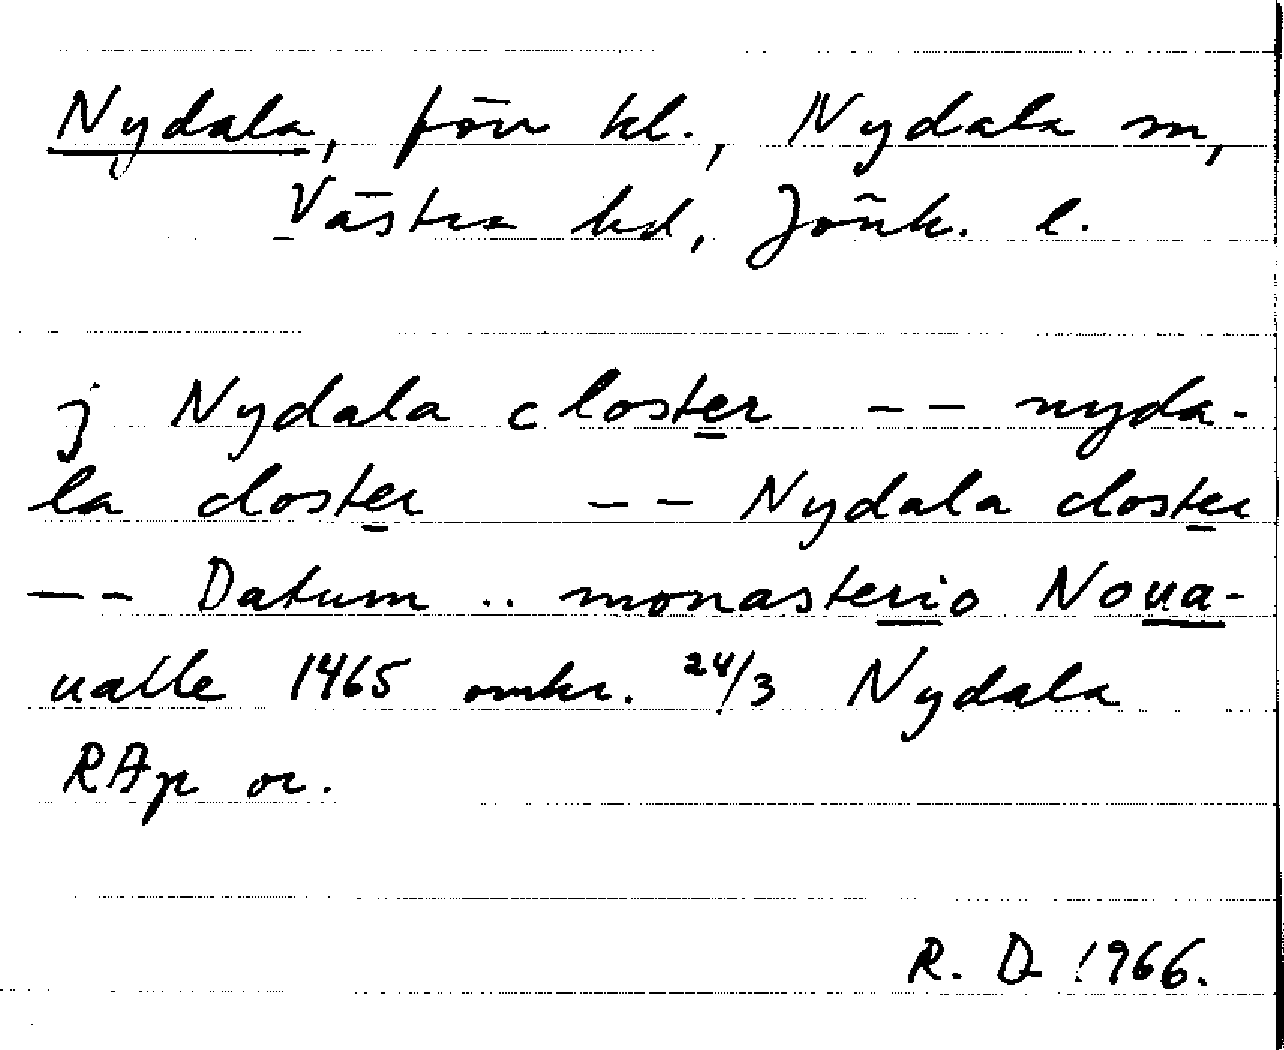 Nydala, förv kl., Nydala sn,
Västra hd, Jönk. l.
j Nydala closter -- nyda-
la closter -- Nydala closter
-- Datum .. monasterio Noua-
ualle 1465 omkr. 24/3 Nydala
RAp or.
R. D 1966.